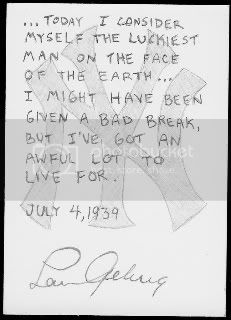 ...TODAY I CONSIDER
MYSELF THE LUCKIEST
MAN ON THE FACE
OF THE EARTH...
I MIGHT HAVE BEEN
GIVEN A BAD BREAK,
BUT I'VE GOT AN
AWFUL LOT TO
LIVE FOR.
JULY 4, 1939
Lou Gehrig
photobucket